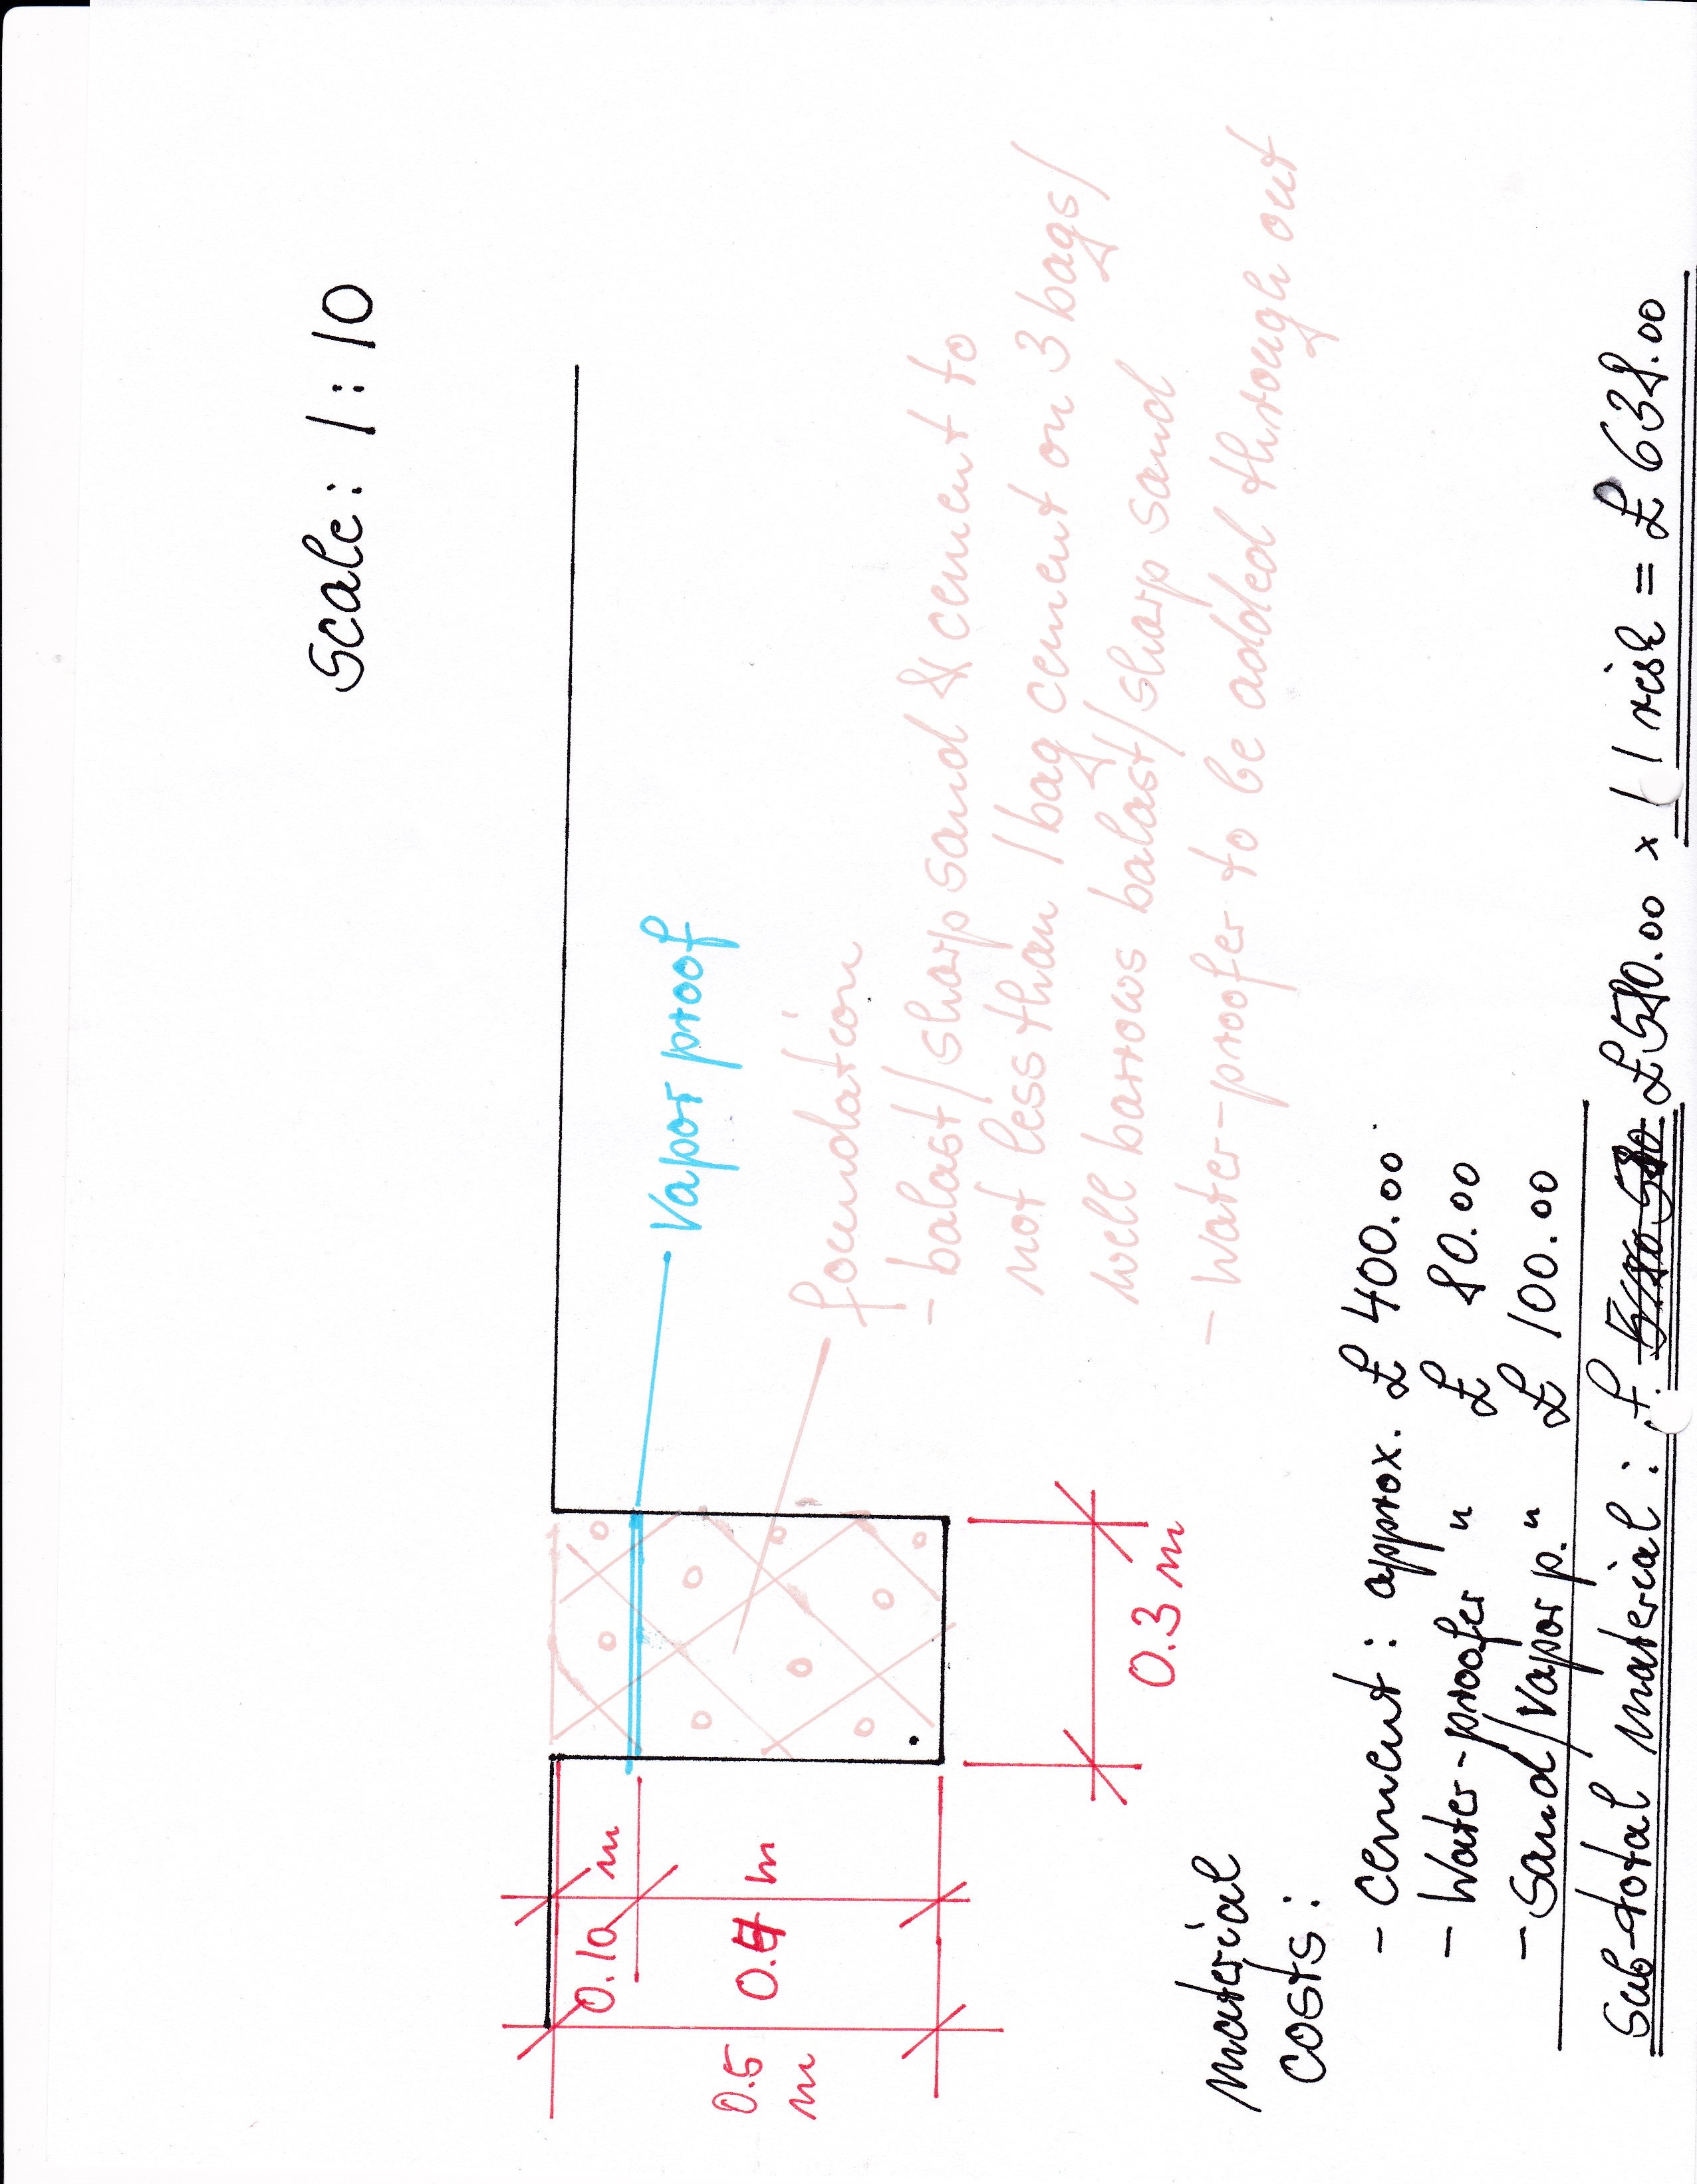 Scale: 1:10
Vapor proof
foundation
- balast/sharp sand & cement to
not less than 1 bag cement on 3 bags/
well barrows balast/sharp sand
- Water-proofer to be added through out
0.10 m
0.4 m
0.5
m
0.3 m
material
costs:
- cement: approx. £ 400.00
- Water-proofer " £ 80.00
- Sand/vapor p. " £ 100.00
Sub-total material: £ £580.00 x 1 1 risk = £ 638.00